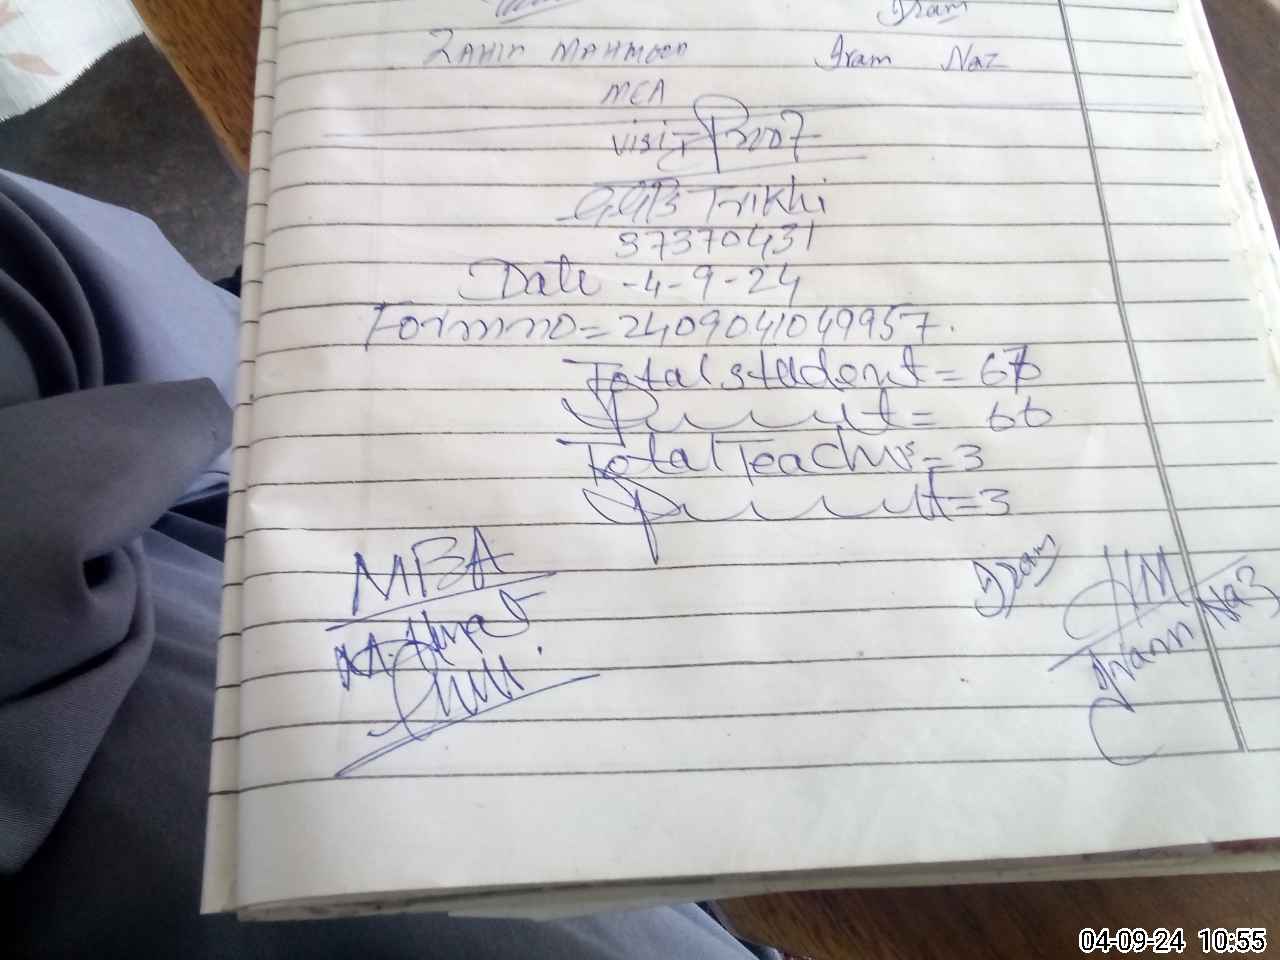 Iram
ZAHIR MAHMOOD Iram Naz
MEA
visit Proof
GGPS Trikhi
37370431
Date -4-9-24
Formno=2409041049957.
Total student = 67
Present = 66
Total Teachers = 3
Present = 3
MBA
Iram HM
Iram Naz
04-09-24 10:55